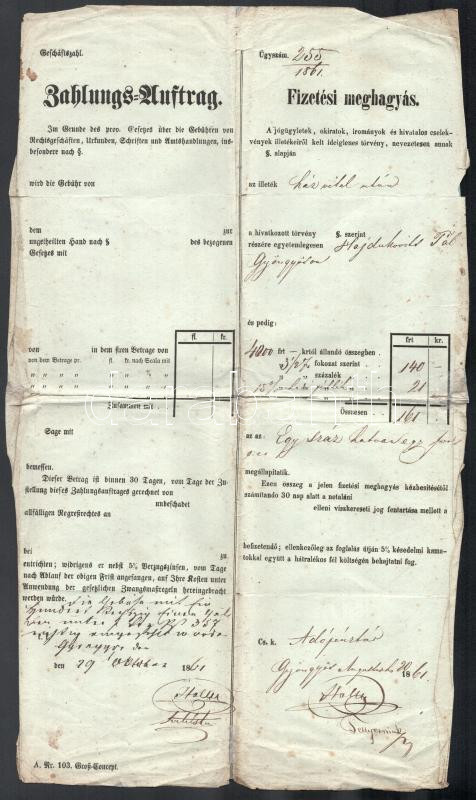 Geschäftszahl.
Zahlungs-Auftrag.
Im Grunde des prov. Gesetzes über die Gebühren von
Rechtsgeschäften, Urkunden, Schriften und Amtshandlungen, ins-
besondere nach §.
wird die Gebühr von
dem zur
ungetheilten Hand nach § des bezogenen
Gesetzes mit
fl. kr.
von in dem fixen Betrage von
von dem Betrage pr. fl. kr. nach Scala mit
" " " " " "
" " " " " "
Zusammen mit
Sage mit
bemessen.
Dieser Betrag ist binnen 30 Tagen, vom Tage der Zu-
stellung dieses Zahlungsauftrages gerechnet von
unbeschadet
allfälligen Regreßrechtes an
bei zu
entrichten; widrigens er nebst 5% Verzugszinsen, vom Tage
nach Ablauf der obigen Frist angefangen, auf Ihre Kosten unter
Anwendung der gesetzlichen Zwangsmaßregeln hereingebracht
werden würde.
den 29 Oktober 1861
A. Nr. 103. Groß-Concept.
Ügyszám. 255
1861.
Fizetési meghagyás.
A jógügyletek, okiratok, irományok és hivatalos cselek-
vények illetékeiről kelt ideiglenes törvény, nevezetesen annak
§. alapján
az illeték ház vétel után
a hivatkozott törvény §. szerint
részére egyetemlegesen Hajdukovits Pál
Gyöngyösön
és pedig:
frt kr.
4000 frt — krtól állandó összegben
3 1/2 % fokozat szerint 140 —
" százalék
15% 21
Összesen 161
az az Egy száz hatvan egy
megállapitatik.
Ezen összeg a jelen fizetési meghagyás kézbesitésétől
számitandó 30 nap alatt a netaláni
elleni viszkereseti jog fentartása mellett a
befizetendő; ellenkezőleg az foglalás útján 5% késedelmi kama-
tokkal együtt a hátralékos fél költségén behajtatni fog.
Cs. k. Adópénztár
Gyöngyös Augustus 20 1861.